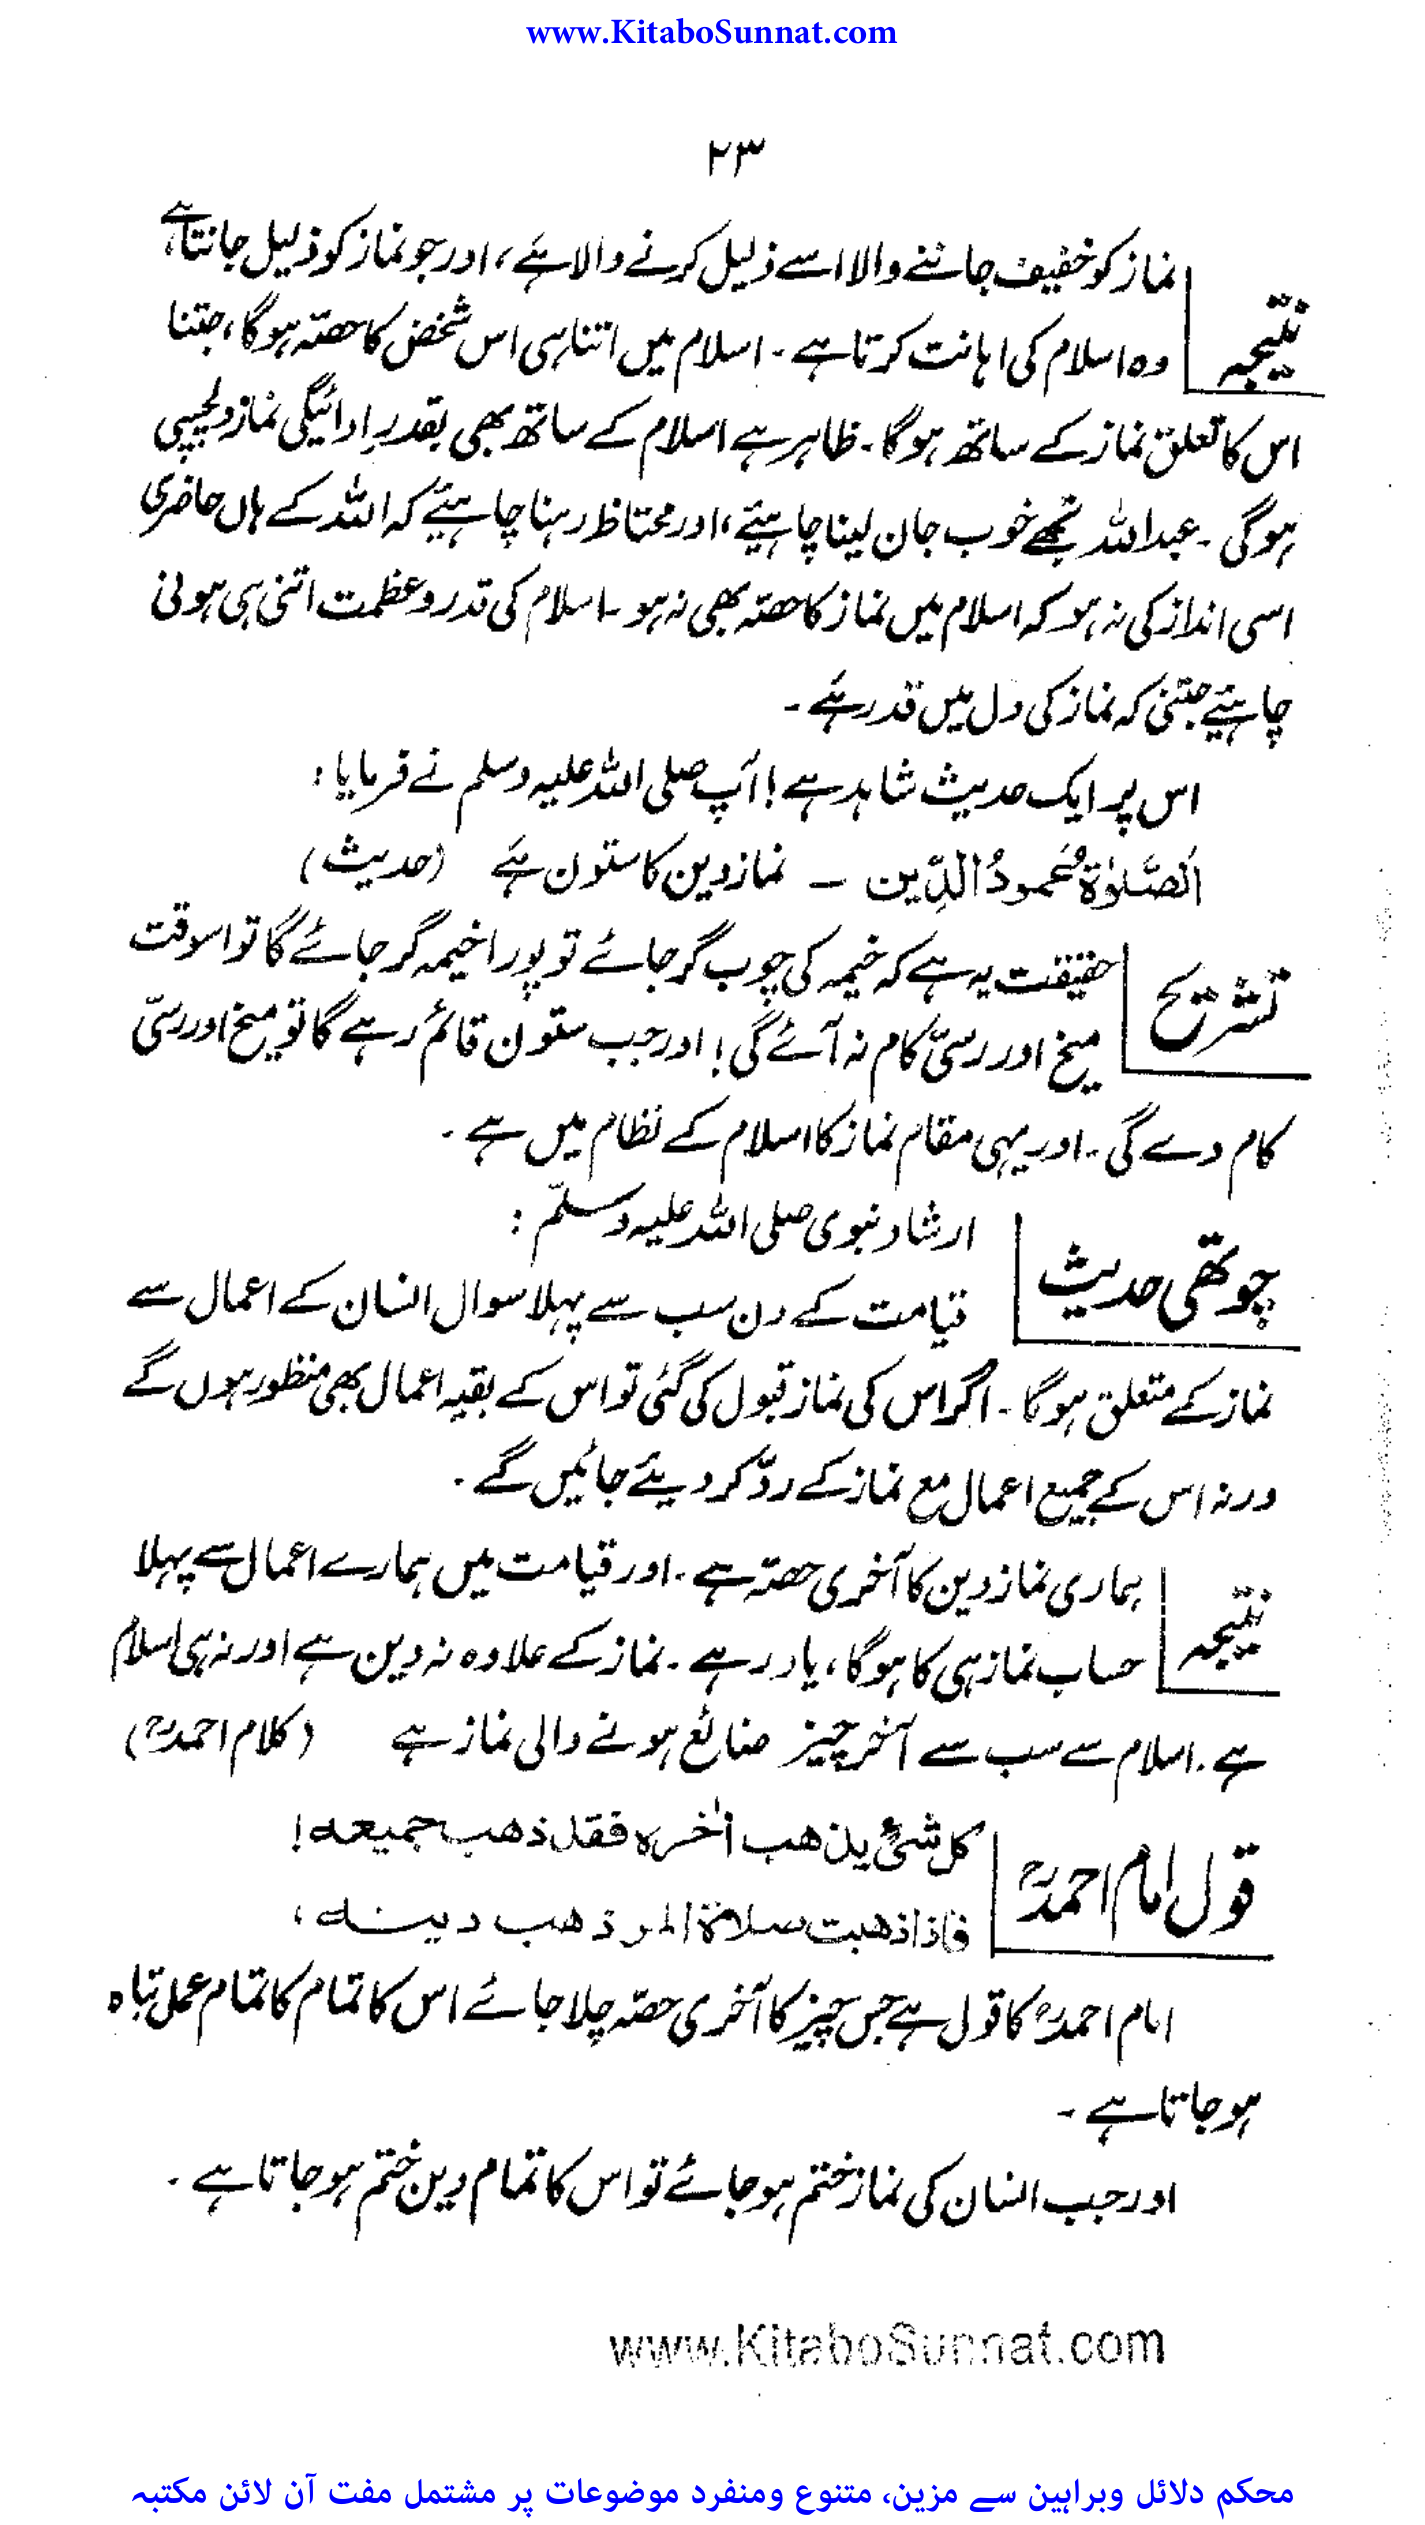 www.KitaboSunnat.com
۲۳
نماز کو خفیف جاننے والا اسے ذلیل کرنے والا ہے، اور جو نماز کو ذلیل جانتا ہے
نتیجہ
وہ اسلام کی اہانت کرتا ہے ۔ اسلام میں اتنا ہی اس شخص کا حصّہ ہوگا، جتنا
اس کا تعلق نماز کے ساتھ ہوگا ۔ ظاہر ہے اسلام کے ساتھ بھی بقدرِ ادائیگی نماز دلچسپی
ہوگی ۔ عبداللہ تجھے خوب جان لینا چاہیئے، اور محتاط رہنا چاہیئے کہ اللہ کے ہاں حاضری
اسی انداز کی نہ ہو کہ اسلام میں نماز کا حصّہ بھی نہ ہو ۔ اسلام کی قدر و عظمت اتنی ہی ہونی
چاہیئے جتنی کہ نماز کی دل میں قدر ہے ۔
اس پر ایک حدیث شاہد ہے! آپ صلی اللہ علیہ وسلم نے فرمایا :
اَلصَّلوٰۃُ عَمودُ الدِّین — نماز دین کا ستون ہے (حدیث)
حقیقت یہ ہے کہ خیمہ کی چوب گر جائے تو پورا خیمہ گر جائے گا تو اسوقت
تشریح
میخ اور رسّی کام نہ آئے گی! اور جب ستون قائم رہے گا تو میخ اور رسّی
کام دے گی ۔ اور یہی مقام نماز کا اسلام کے نظام میں ہے ۔
ارشاد نبوی صلی اللہ علیہ وسلّم :
چوتھی حدیث
قیامت کے دن سب سے پہلا سوال انسان کے اعمال سے
نماز کے متعلق ہوگا ۔ اگر اس کی نماز قبول کی گئی تو اس کے بقیہ اعمال بھی منظور ہوں گے
ورنہ اس کے جمیع اعمال مع نماز کے ردّ کر دیئے جائیں گے ۔
ہماری نماز دین کا آخری حصّہ ہے ۔ اور قیامت میں ہمارے اعمال سے پہلا
نتیجہ
حساب نماز ہی کا ہوگا، یاد رہے ۔ نماز کے علاوہ نہ دین ہے اور نہ ہی اسلام
ہے ۔ اسلام سے سب سے آخر چیز ضائع ہونے والی نماز ہے (کلام احمدؒ)
کل شیٔ یذھب اٰخرہ فقد ذھب جمیعہ!
قول امام احمدؒ
فاذا ذھبت سلاۃ المر ذھب دینہ،
امام احمدؒ کا قول ہے جس چیز کا آخری حصّہ چلا جائے اس کا تمام کا تمام عمل تباہ
ہو جاتا ہے ۔
اور جب انسان کی نماز ختم ہو جائے تو اس کا تمام دین ختم ہو جاتا ہے ۔
www.KitaboSunnat.com
محکم دلائل وبراہین سے مزین، متنوع ومنفرد موضوعات پر مشتمل مفت آن لائن مکتبہ